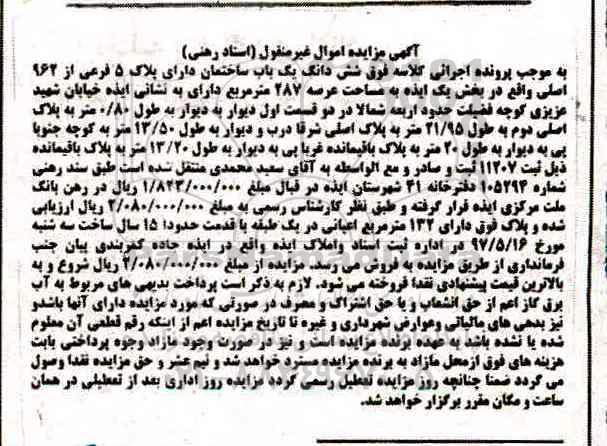 آگهی مزایده اموال غیرمنقول (اسناد رهنی)
به موجب پرونده اجرائی کلاسه فوق شش دانگ یک باب ساختمان دارای پلاک ۵ فرعی از ۹۶۲
اصلی واقع در بخش یک ایذه به مساحت عرصه ۲۸۷ مترمربع دارای به نشانی ایذه خیابان شهید
عزیزی کوچه فضیلت حدود اربعه شمالا در دو قسمت اول دیوار به دیوار به طول ۰/۸۰ متر به پلاک
اصلی دوم به طول ۲۱/۹۵ متر به پلاک اصلی شرقا درب و دیوار به طول ۱۳/۵۰ متر به کوچه جنوبا
پی به دیوار به طول ۲۰ متر به پلاک باقیمانده غربا پی به دیوار به طول ۱۳/۲۰ متر به پلاک باقیمانده
ذیل ثبت ۱۱۲۰۷ ثبت و صادر و مع الواسطه به آقای سعید محمدی منتقل شده است طبق سند رهنی
شماره ۱۰۵۲۹۴ دفترخانه ۴۱ شهرستان ایذه در قبال مبلغ ۱/۸۲۳/۰۰۰/۰۰۰ ریال در رهن بانگ
ملت مرکزی ایذه قرار گرفته و طبق نظر کارشناس رسمی به مبلغ ۲/۰۸۰/۰۰۰/۰۰۰ ریال ارزیابی
شده و پلاک فوق دارای ۱۳۲ مترمربع اعیانی در یک طبقه با قدمت حدودا ۱۵ سال ساخت سه شنبه
مورخ ۹۷/۵/۱۶ در اداره ثبت اسناد واملاک ایذه واقع در ایذه جاده کمربندی پیان جنب
فرمانداری از طریق مزایده به فروش می رسد. مزایده از مبلغ ۲/۰۸۰/۰۰۰/۰۰۰ ریال شروع و به
بالاترین قیمت پیشنهادی نقدا فروخته می شود. لازم به ذکر است پرداخت بدیهی های مربوط به آب
برق گاز اعم از حق انشعاب و یا حق اشتراک و مصرف در صورتی که مورد مزایده دارای آنها باشدو
نیز بدهی های مالیاتی وعوارض شهرداری و غیره تا تاریخ مزایده اعم از اینکه رقم قطعی آن معلوم
شده یا نشده باشد به عهده برنده مزایده است و نیز در صورت وجود مازاد وجوه پرداختی بابت
هزینه های فوق ازمحل مازاد به برنده مزایده مسترد خواهد شد و نیم عشر و حق مزایده نقدا وصول
می گردد ضمنا چنانچه روز مزایده تعطیل رسمی گردد مزایده روز اداری بعد از تعطیلی در همان
ساعت و مکان مقرر برگزار خواهد شد.